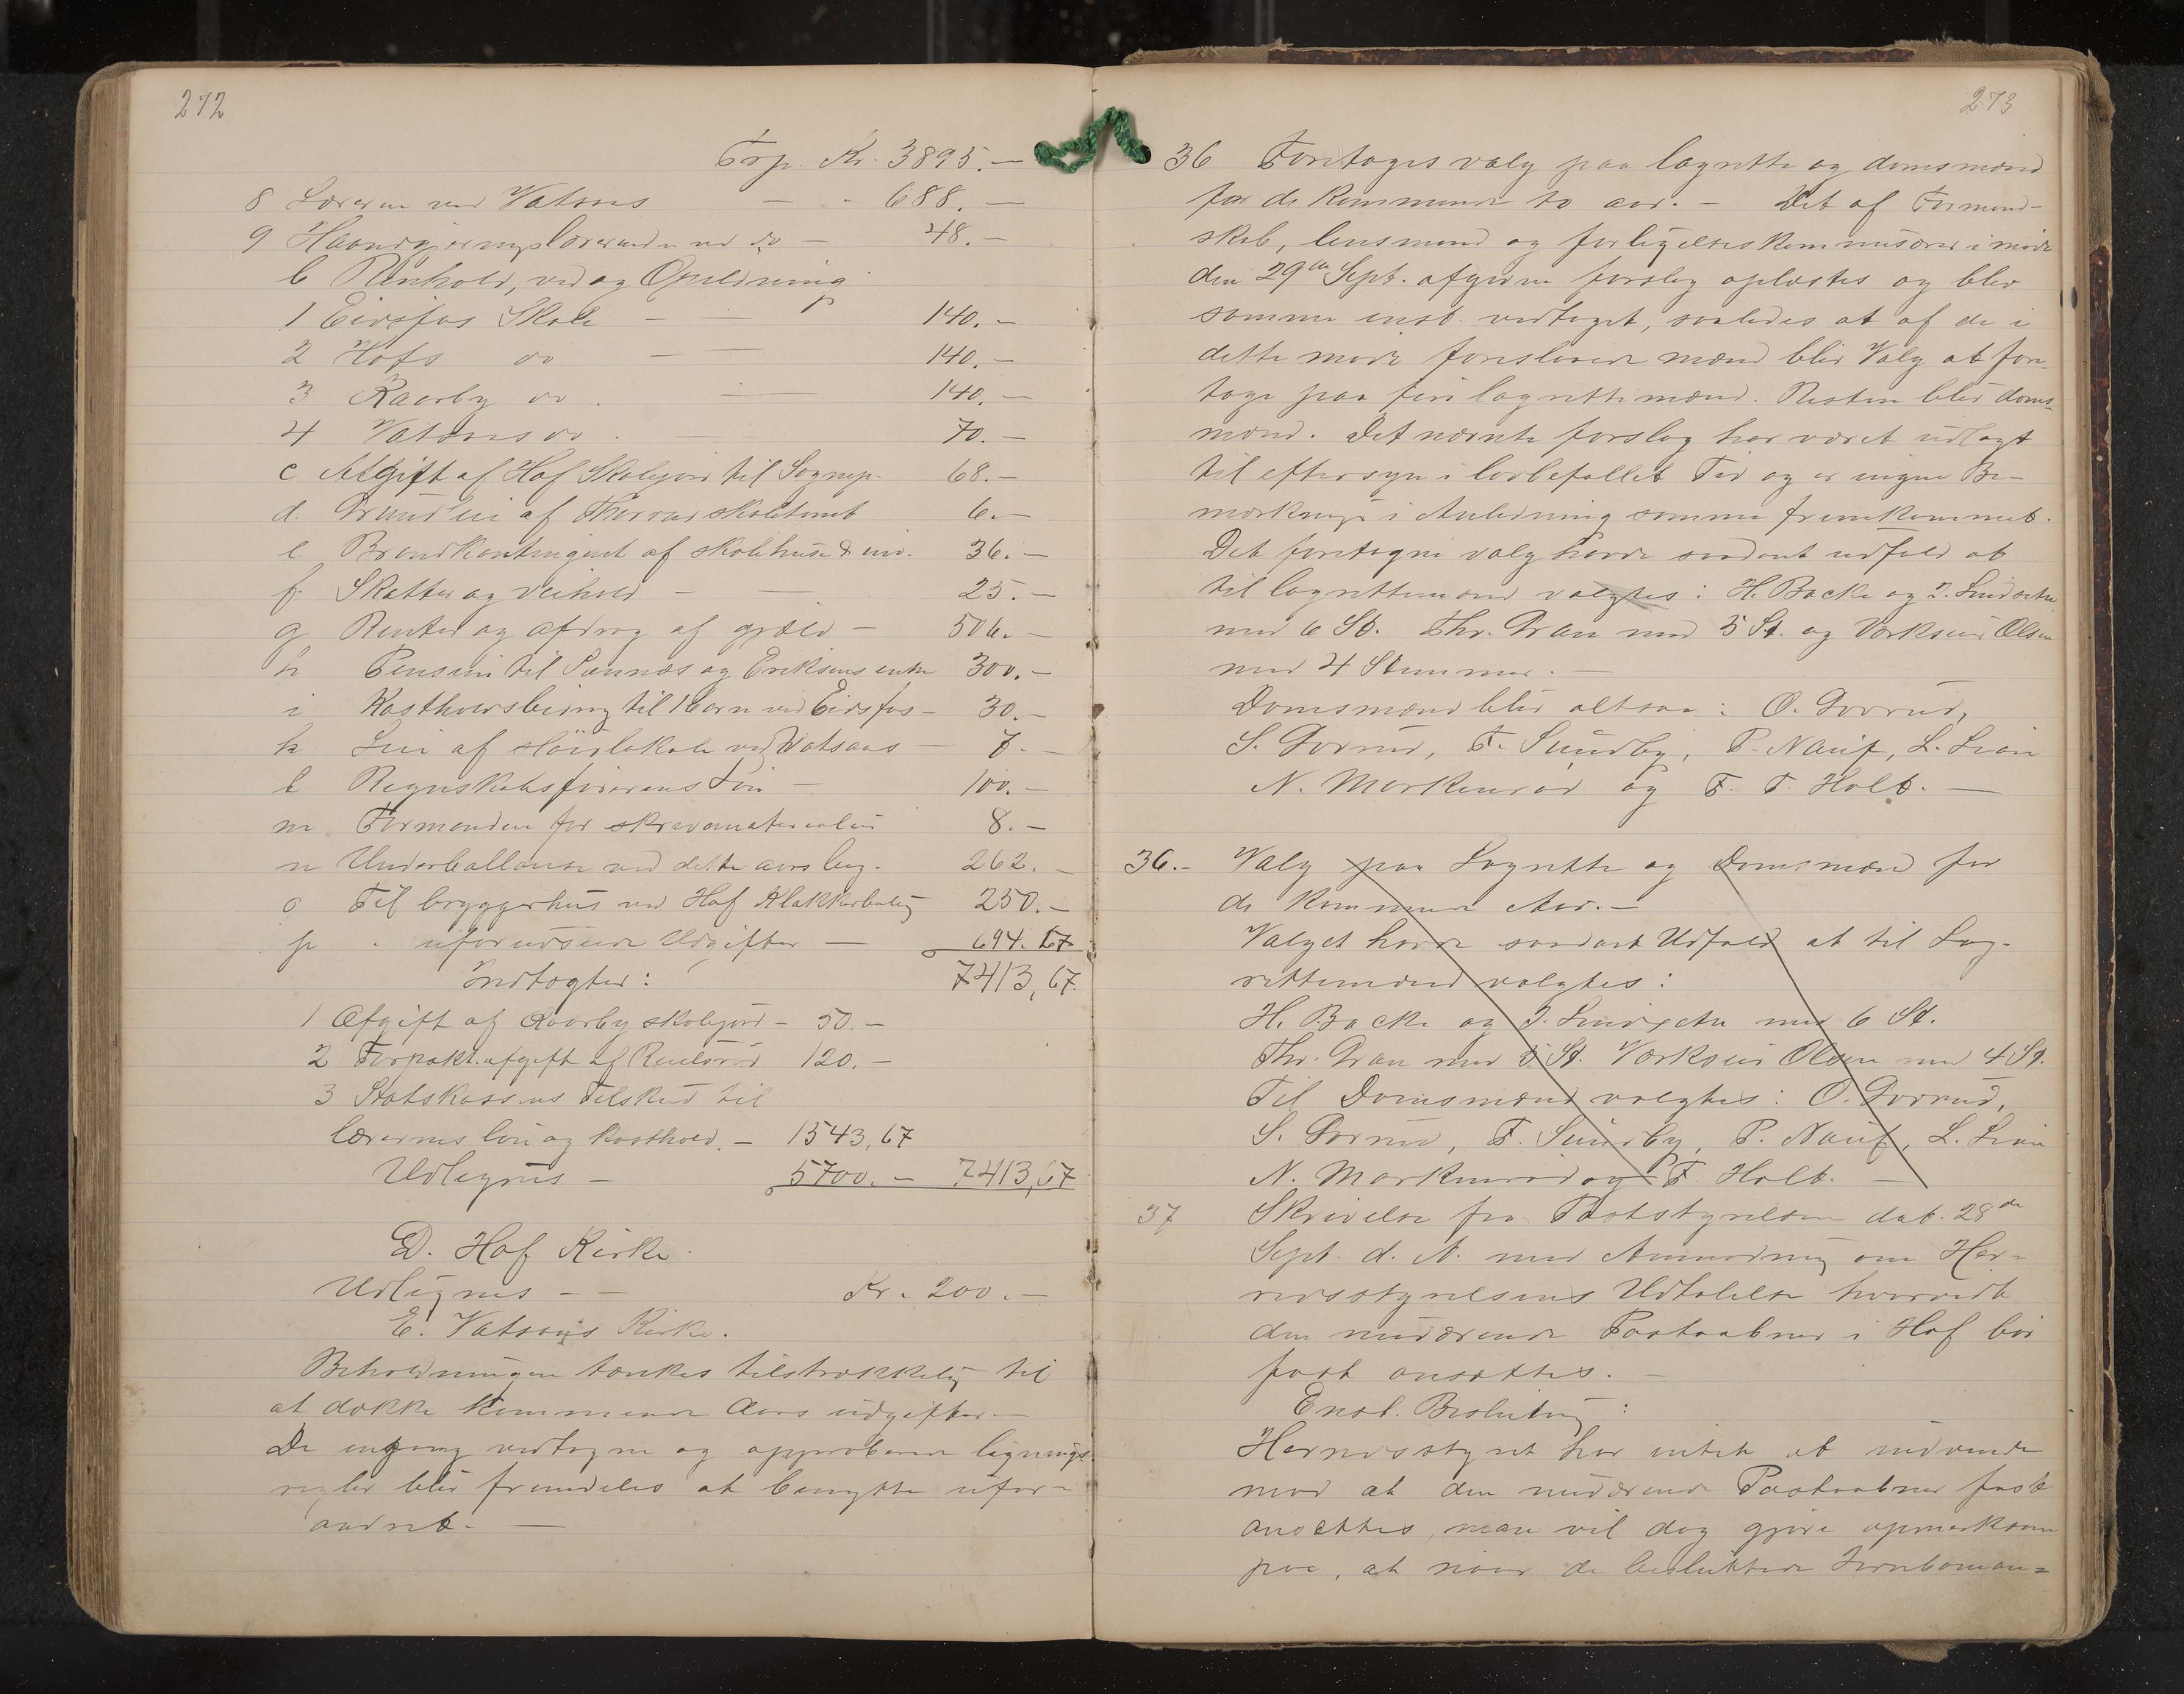 272
Trp. Kr. 3895.—
8 Læreren ved Vatsaas — - 688.—
9 Haandgjerningslærerinden ved do — 48.—
b Renhold, ved og Opildning
1 Eidsfos Skole — — 140.—
2 Hofs do — — 140.—
3 Kaarby do. — 140.—
4 Vatsaas do. 70.—
c Afgift af Hof Skolejord til Sognep. 68.—
d. Grundleie af Thorrud skoletomt 6.—
e Brandkontingent af skolehuse & inv. 36.—
f. Skatter og Veihold — — 25.—
g Renter og afdrag af gjæld — 506.—
h Pension til Sannæs og Eriksens enke 300.—
i Kostholdsbidrag til 1 barn ved Eidsfos — 30.—
k Leie af slöidlokale ved Vatsaas — 7.—
l Regnskabsförerens Lön — 100.—
m Formanden for skrivematerialier 8.—
n Underballanse ved dette aars beg. 262.—
o Til bryggerhus ved Hof Klokkerbolig 250.—
p - uforudseede Udgifter — 694.67
Indtægter: 7413,67.
1 Afgift af Kaarby skolejord — 50.—
2 Forpakt.afgift af 120.—
3 Statskassens Tilskud til
lærernes løn og kosthold. — 1543,67
Udlignes — 5700.— 7413,67
D. Hof Kirke.
Udlignes — — Kr. 200.—
E. Vatsaas Kirke.
Beholdningen tænkes tilstrækkelig til
at dække kommende Aars udgifter.—
De engang vedtagne og approberede lignings
regler blir fremdeles at benytte ufor-
andret. —
273
36 Foretoges valg paa lagrette og domsmænd
for de kommende to aar. — Det af Formand-
skab, lensmand og forligelseskommisærer i møde
den 29de Sept. afgivne forslag oplæstes og blev
samme enst. vedtaget, saaledes at af de i
dette møde foreslaaede mænd blir Valg at fore-
tage paa fire lagrettemænd. Resten blir doms-
mænd. Det nævnte forslag har været udlagt
til eftersyn i lovbefallet Tid og er ingen Be-
mærkning i Anledning samme fremkommet.
Det foretagne valg havde saadant udfald at
til lagrettemænd valgtes: H. Backe og J. Lindsetn
med 6 St. Thr. Gran med 5 St. og Værkseier Olsen
med 4 Stemmer. —
Domsmænd blir altsaa: O. Gorrud,
S. Gorrud, F. Sundby, P. Nauf, L. Lian
N. Markerud og F. T. Holt. —
36.- Valg paa Lagrette og Domsmænd for
de kommende Aar.—
Valget havde saadant Udfald at til Lag-
rettemænd valgtes:
H. Backe og J. Lindsetn med 6 St.
Thr. Gran med 5 St. Værkseier Olsen med 4 St.
Til Domsmænd valgtes: O. Gorrud,
S. Gorrud, F. Sundby, P. Nauf, L. Lian
N. Markerud og F. Holt. —
37 Skrivelse fra Poststyrelsen dat. 28de
Sept. d. A. med Anmodning om Her-
redsstyrelsens Udtalelse hvorvidt
den nuværende Postaabner i Hof bør
fast ansættes. —
Enst. Beslutning:
Herredsstyret har intet at indvende
mod at den nuværende Postaabner fast
ansættes, man vil dog gjøre opmerksom
paa, at naar de besluttede Jernbanean=